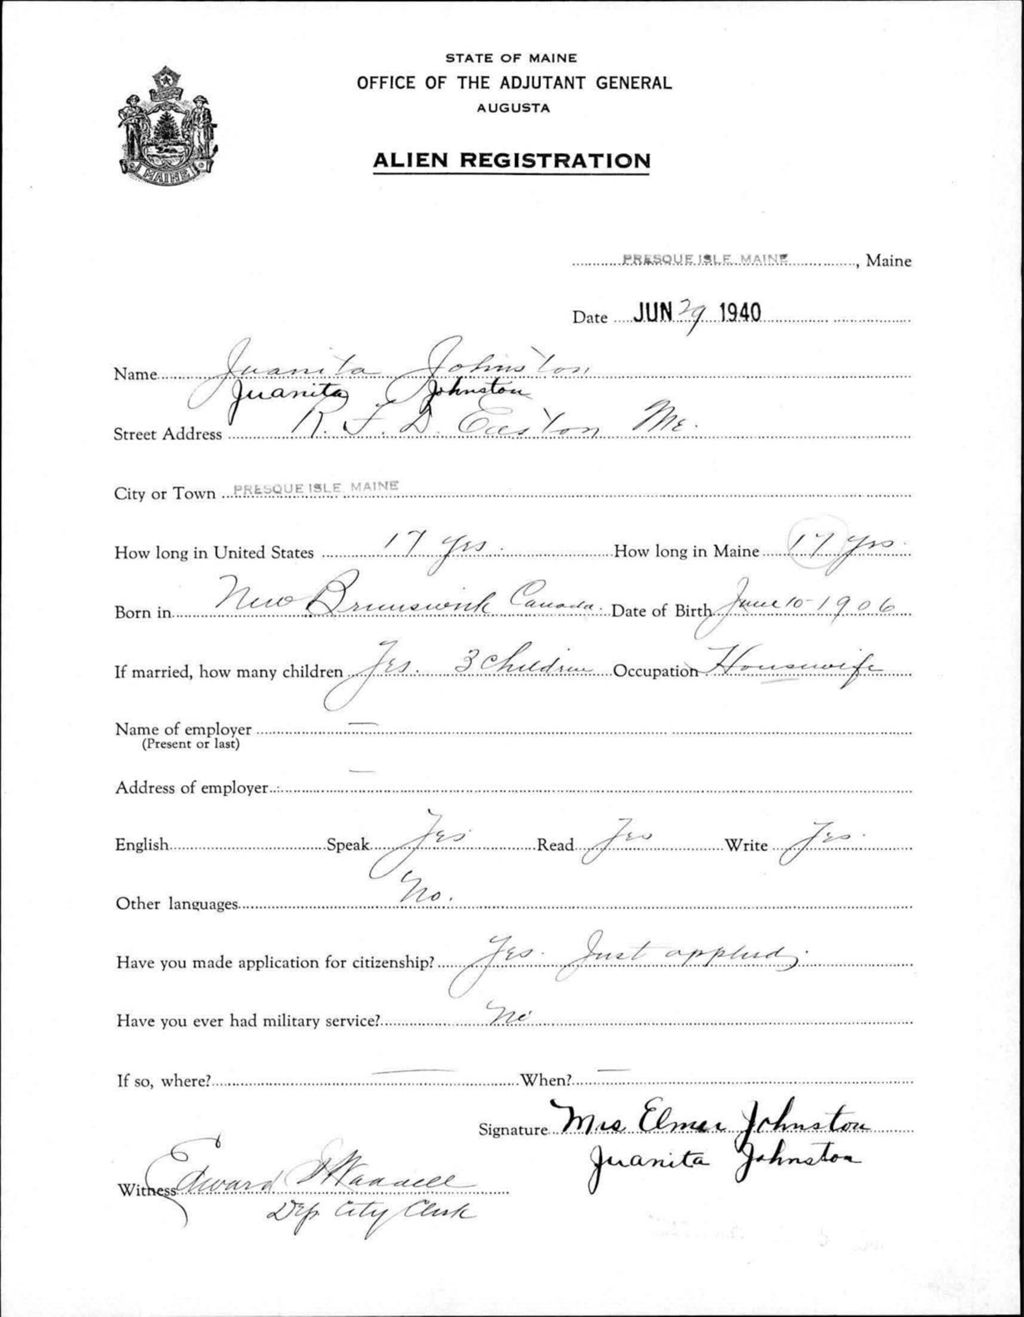 STATE OF MAINE
OFFICE OF THE ADJUTANT GENERAL
AUGUSTA
ALIEN REGISTRATION
MAINE
PRESQUE ISLE MAINE, Maine
Date JUN 29 1940
Name Juanita Johnston
Juanita Johnston
Street Address R. F. D. Easton Me.
City or Town PRESQUE ISLE MAINE
How long in United States 17 yrs. How long in Maine 17 yrs.
Born in New Brunswick Canada. Date of Birth June 10-1906
If married, how many children Yes. 3 Children Occupation Housewife
Name of employer —
(Present or last)
Address of employer —
English Speak Yes Read Yes Write Yes.
Other languages No.
Have you made application for citizenship? Yes. Just applied.
Have you ever had military service? No
If so, where? — When? —
Signature Mrs Elmer Johnston
Juanita Johnston
Witness Edward Waddell
Dep City Clerk